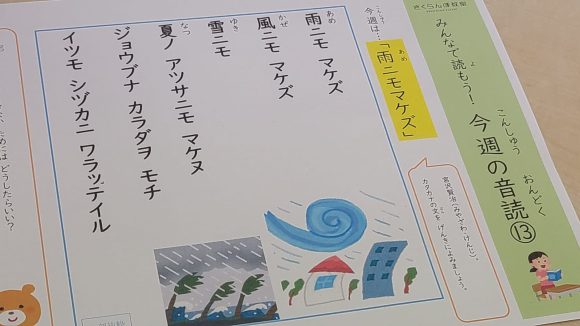 みんなで読もう!
今週の音読⑬
こんしゅう
おんどく
今週は…
「雨ニモマケズ」
あめ
宮沢賢治(みやざわ けんじ)。
カタカナの文を げんきによみましょう。
雨ニモ マケズ
あめ
風ニモ マケズ
かぜ
雪ニモ
ゆき
夏ノ アツサニモ マケヌ
なつ
ジョウブナ カラダヲ モチ
イツモ シヅカニ ワラッテイル
どうしたらいい?